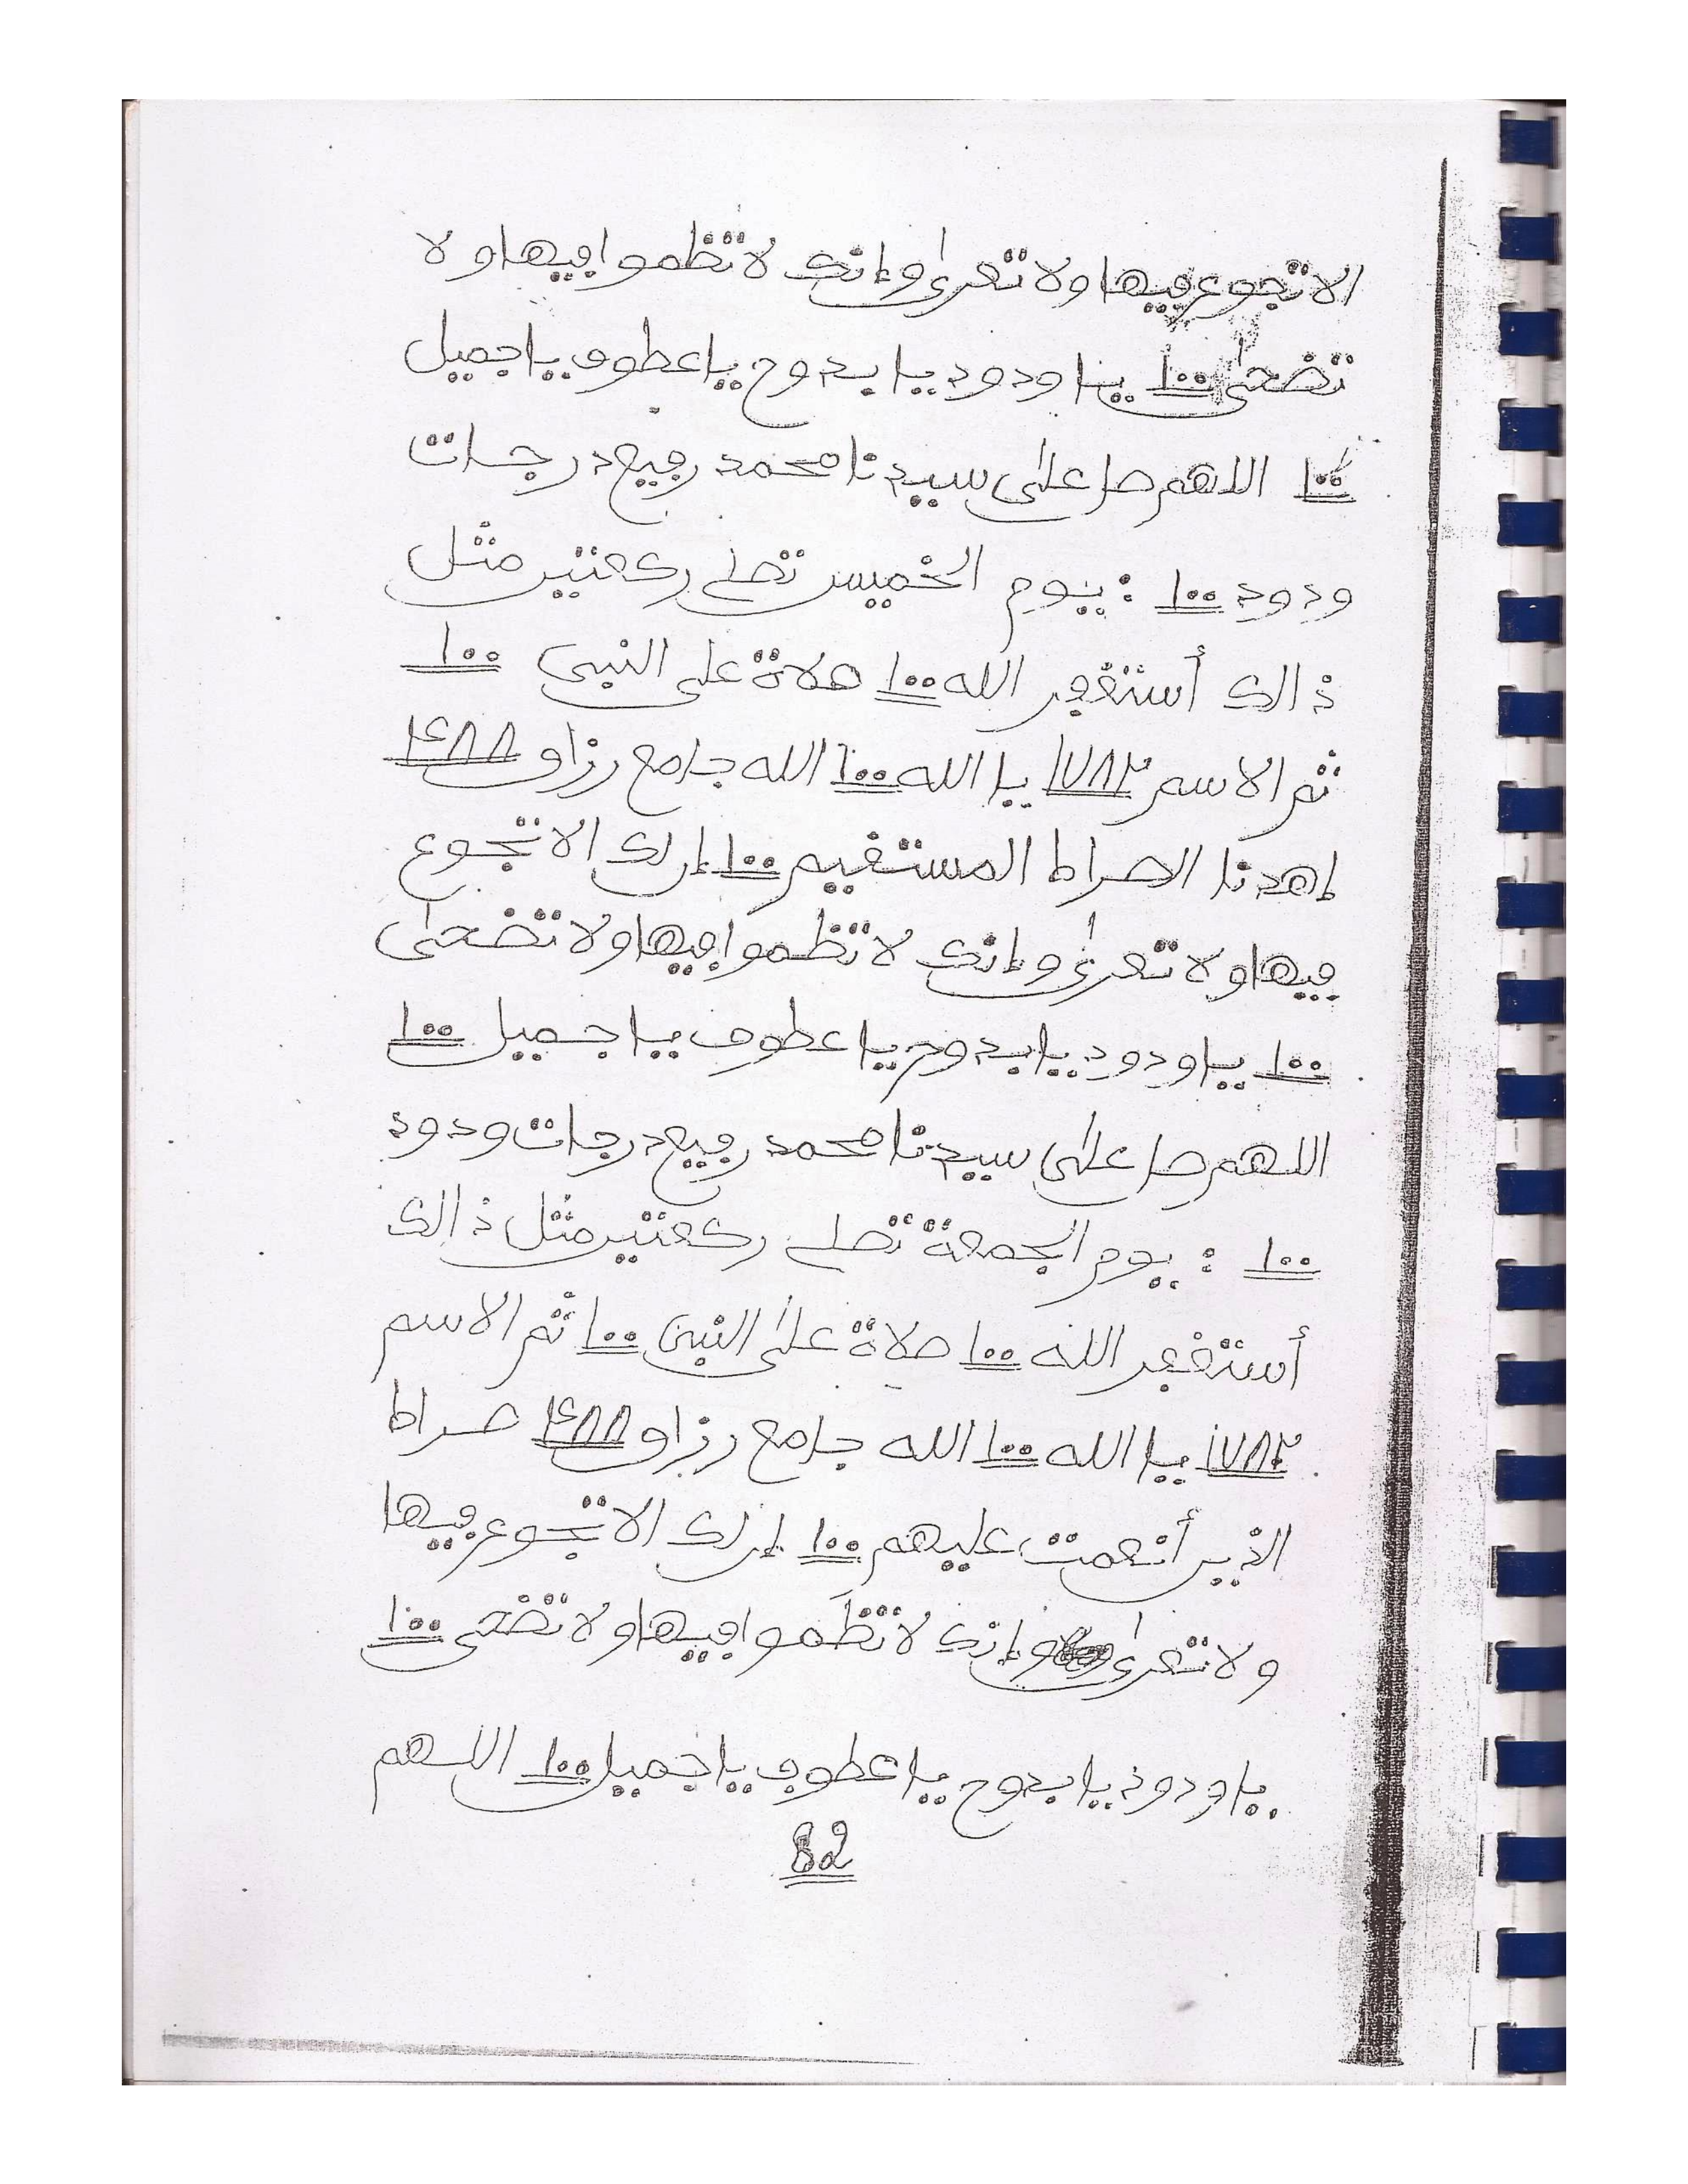 الا تجوع فيها ولا تعرى وإنك لا تظموا فيها ولا
تضحى ١٠٠ يا ودود يا بدوح يا عطوف يا جميل
١٠٠ اللهم صل على سيدنا محمد رفيع درجات
ودود ١٠٠ : يوم الخميس تصلے ركعتين مثل
ذالك أستغفر الله ١٠٠ صلاة على النبى ١٠٠
ثم الاسم ١٧٨٢ يا الله ١٠٠ الله جامع رزاق ١٤٨٨
إهدنا الصراط المستقيم ١٠٠ إن لك الا تجوع
فيها ولا تعرى وإنك لا تظموا فيها ولا تضحى
١٠٠ يا ودود يا بدوح يا عطوف يا جميل ١٠٠
اللهم صل على سيدنا محمد رفيع درجات ودود
١٠٠ : يوم الجمعة تصلے ركعتين مثل ذالك
أستغفر الله ١٠٠ صلاة على النبى ١٠٠ ثم الاسم
١٧٨٢ يا الله ١٠٠ الله جامع رزاق ١٤٨٨ صراط
الذين أنعمت عليهم ١٠٠ إن لك الا تجوع فيها
ولا تعرى وإنك لا تظموا فيها ولا تضحى ١٠٠
يا ودود يا بدوح يا عطوف يا جميل ١٠٠ اللهم
82